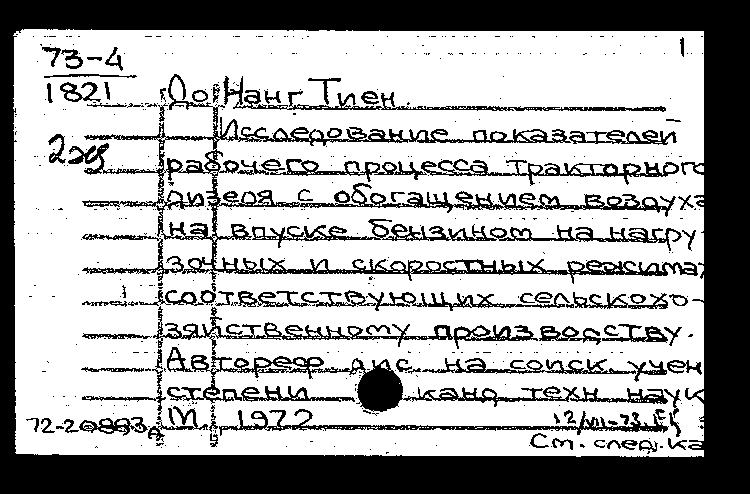 73-4 1
1821 До Нанг Тиен.
Исследование показателей
2ж рабочего процесса тракторного
дизеля с обогащением воздуха
на впуске бензином на нагру-
зочных и скоростных режима
соответствующих сельскохо-
зяйственному производству.
Автореф дис на соиск учен
степени канд техн наук
М 1972
См. след. ка